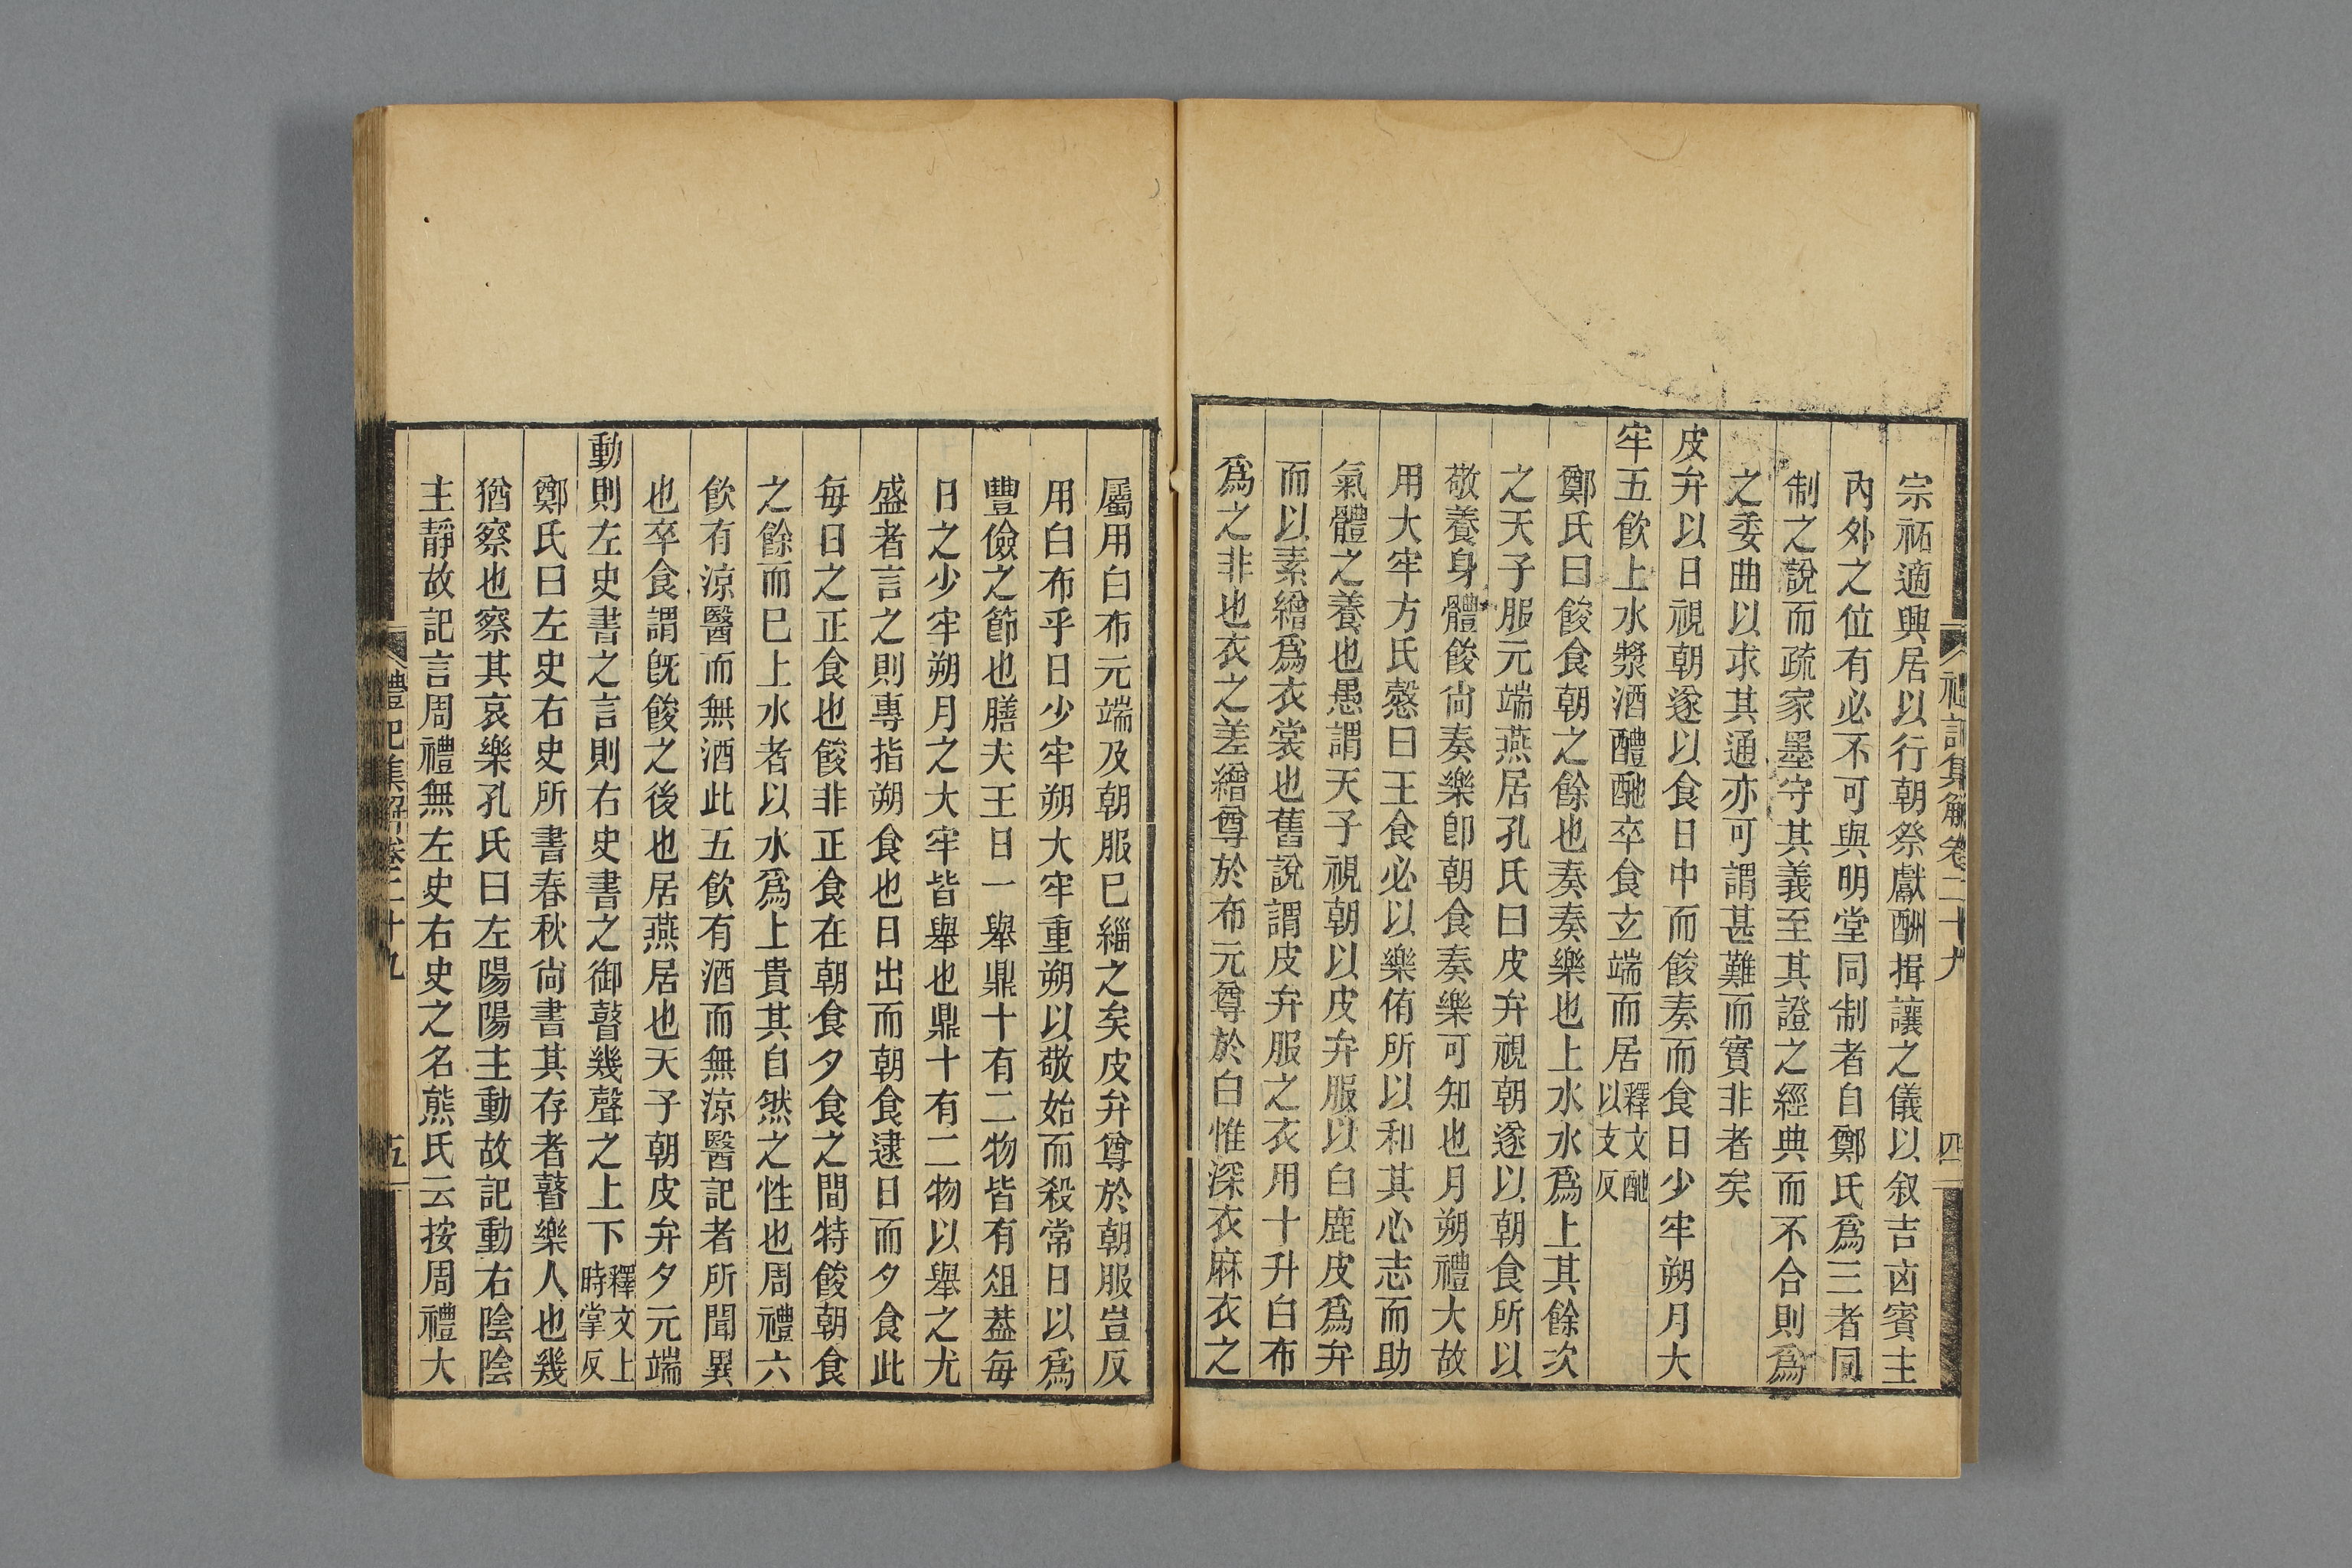 禮記集解卷二十九
四
宗祏適興居以行朝祭獻酬揖讓之儀以叙吉㐫賓主
內外之位有必不可與明堂同制者自鄭氏爲三者同
制之說而疏家墨守其義至其證之經典而不合則爲
之委曲以求其通亦可謂甚難而實非者矣
皮弁以日視朝遂以食日中而餕奏而食日少牢朔月大
牢五飲上水漿酒醴酏卒食玄端而居釋文酏以支反
鄭氏曰餕食朝之餘也奏奏樂也上水水爲上其餘次
之天子服元端燕居孔氏曰皮弁視朝遂以朝食所以
敬養身體餕尙奏樂卽朝食奏樂可知也月朔禮大故
用大牢方氏慤曰王食必以樂侑所以和其心志而助
氣體之養也愚謂天子視朝以皮弁服以白鹿皮爲弁
而以素繒爲衣裳也舊說謂皮弁服之衣用十升白布
爲之非也衣之差繒尊於布元尊於白惟深衣麻衣之
屬用白布元端及朝服已緇之矣皮弁尊於朝服豈反
用白布乎日少牢朔大牢重朔以敬始而殺常日以爲
豐儉之節也膳夫王日一舉鼎十有二物皆有俎葢每
日之少牢朔月之大牢皆舉也鼎十有二物以舉之尤
盛者言之則專指朔食也日出而朝食逮日而夕食此
每日之正食也餕非正食在朝食夕食之間特餕朝食
之餘而已上水者以水爲上貴其自然之性也周禮六
飲有涼醫而無酒此五飲有酒而無涼醫記者所聞異
也卒食謂旣餕之後也居燕居也天子朝皮弁夕元端
動則左史書之言則右史書之御瞽幾聲之上下釋文上時掌反
鄭氏曰左史右史所書春秋尙書其存者瞽樂人也幾
猶察也察其哀樂孔氏曰左陽陽主動故記動右陰陰
主靜故記言周禮無左史右史之名熊氏云按周禮大
禮記集解卷二十九
五